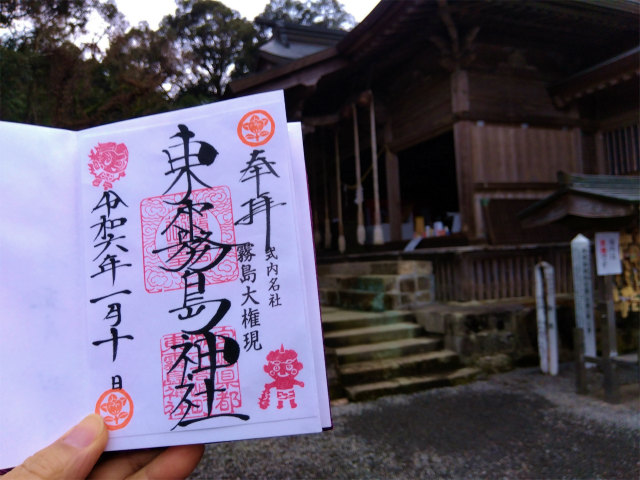 奉拝
式内名社
霧島大権現
東霧島神社
令和六年一月十日